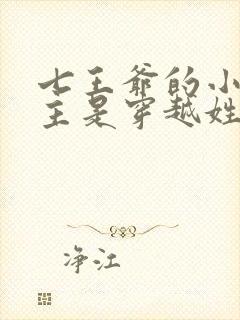 七王爷的小
主是穿越姓
净江